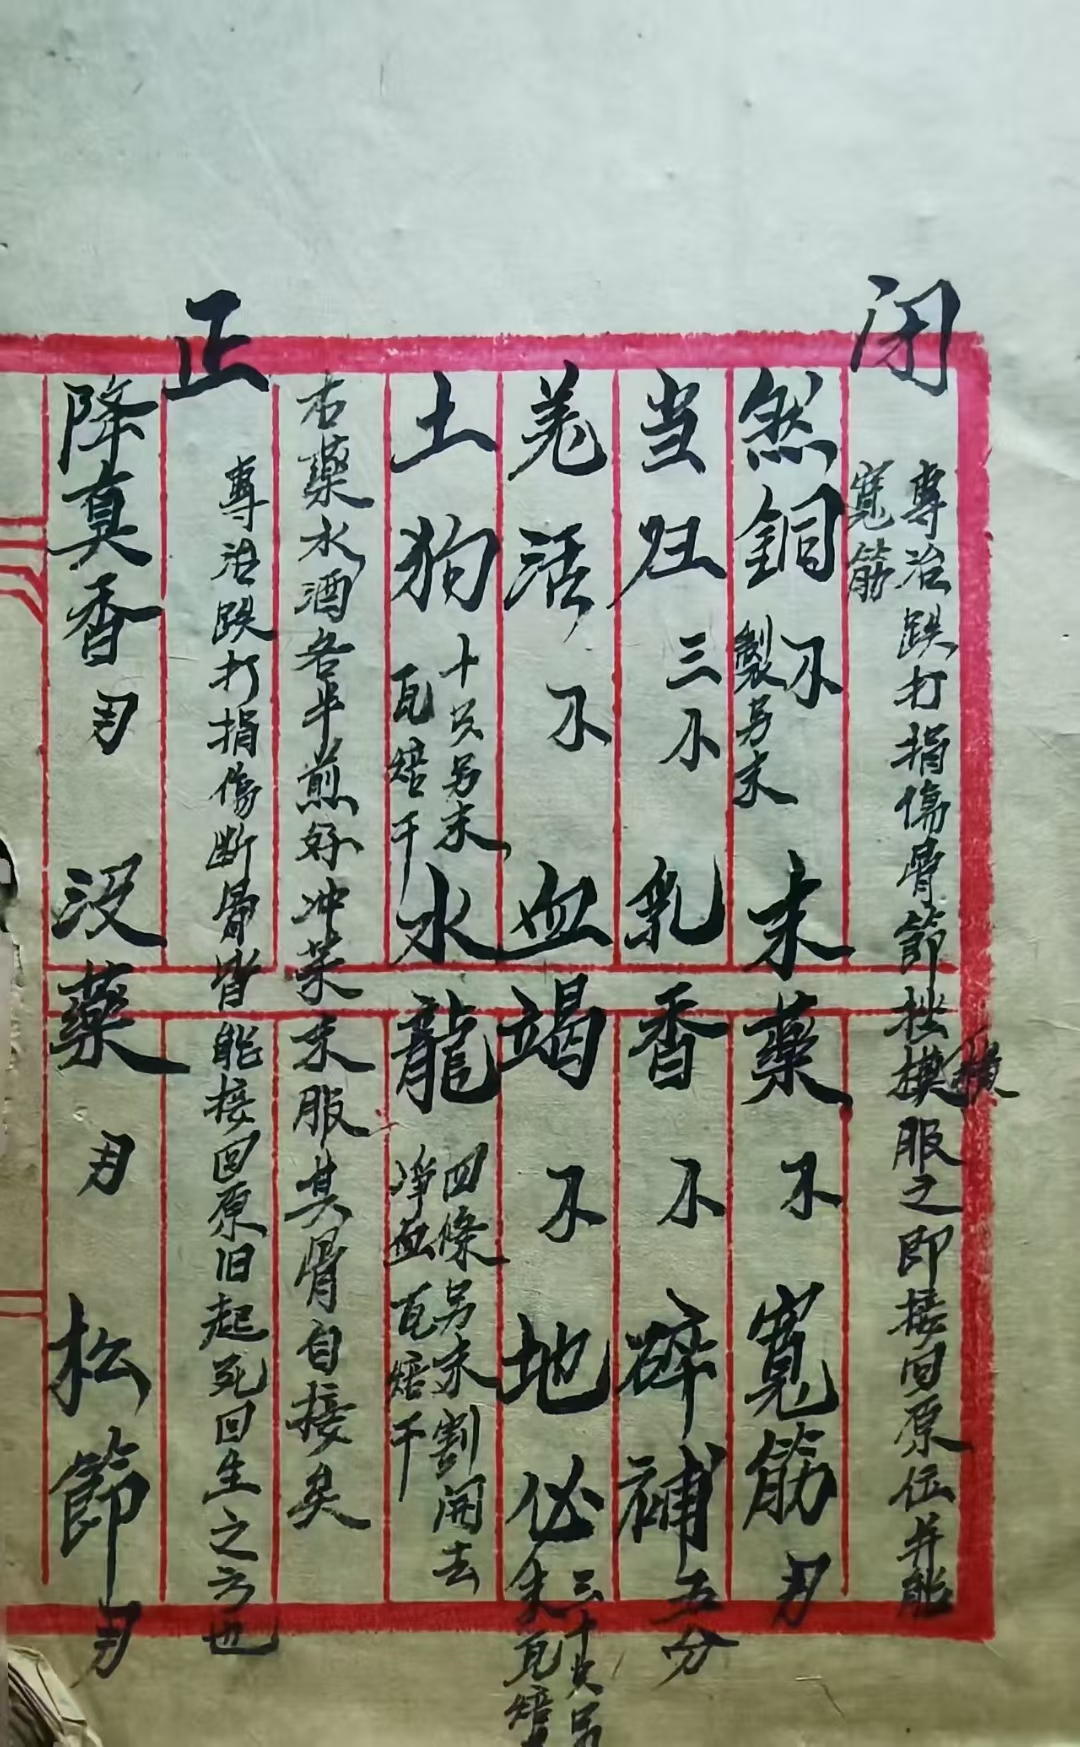 闭
專治跌打捐傷骨節挫摸服之即接回原位并能
寬筋
然銅 製另末 末藥 寬筋
当归 三 乳香 碎補五分
羌活 血竭 地必 三十只另末瓦焙
土狗 十只另末瓦焙干 水龍 四條另末割開去净血瓦焙干
右藥水酒各半煎好冲藥末服其骨自接矣
正
專治跌打捐傷断骨皆能接回原旧起死回生之方也
降真香 没藥 松節